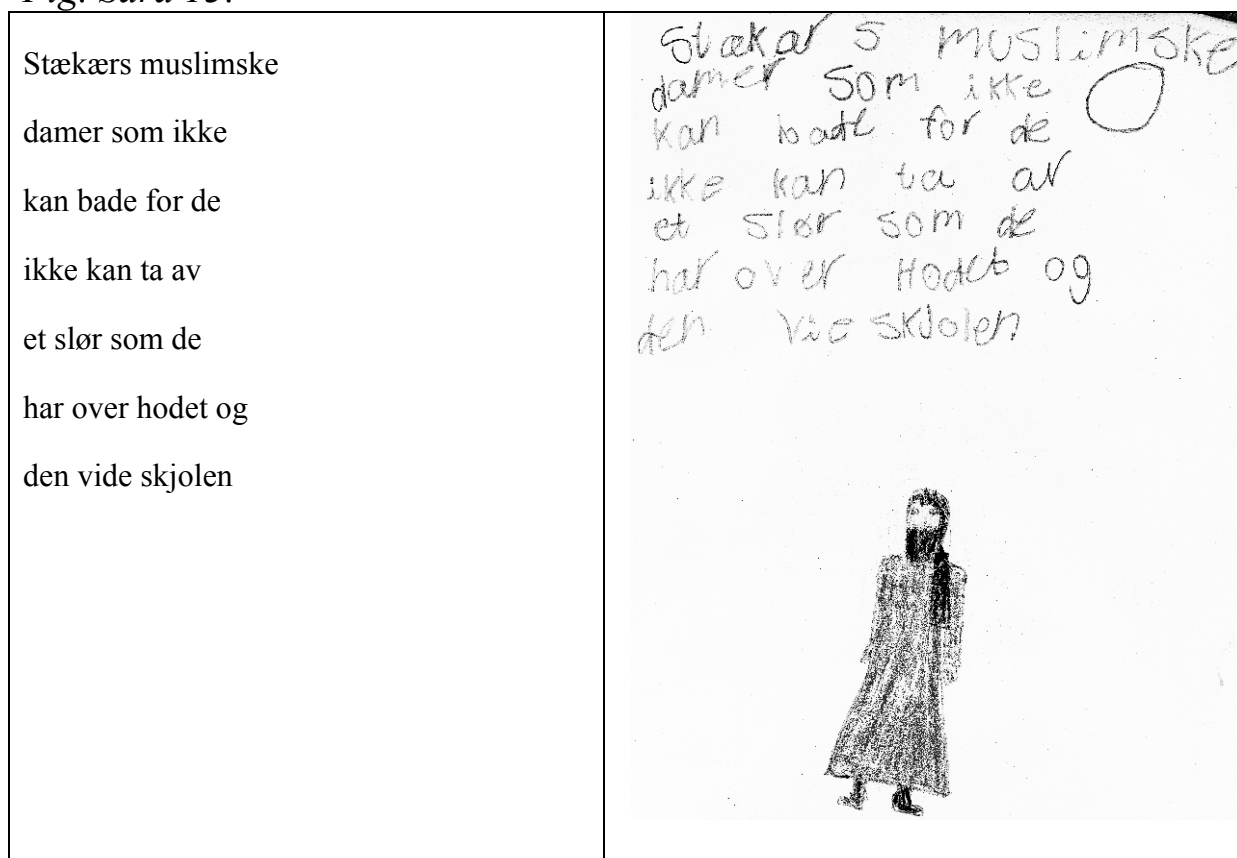 Fig. Sara 15.
Stækærs muslimske
damer som ikke
kan bade for de
ikke kan ta av
et slør som de
har over hodet og
den vide skjolen
Stækar s muslimske
damer som ikke
kan bade for de
ikke kan ta av
et slør som de
har over Hodet og
den vie skjolen